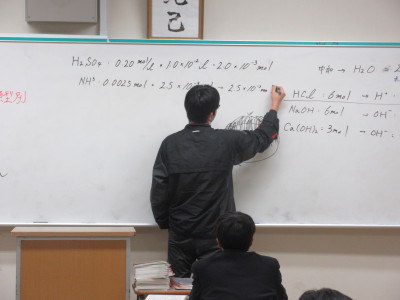 己
型別
H₂SO₄ · 0.20 mol/l × 1.0×10⁻² l · 2.0×10⁻³ mol
NH³ · 0.0025 mol
中和 → H₂O
HCl · 6mol → H⁺
NaOH · 6mol → OH⁻
Ca(OH)₂ = 3mol → OH⁻